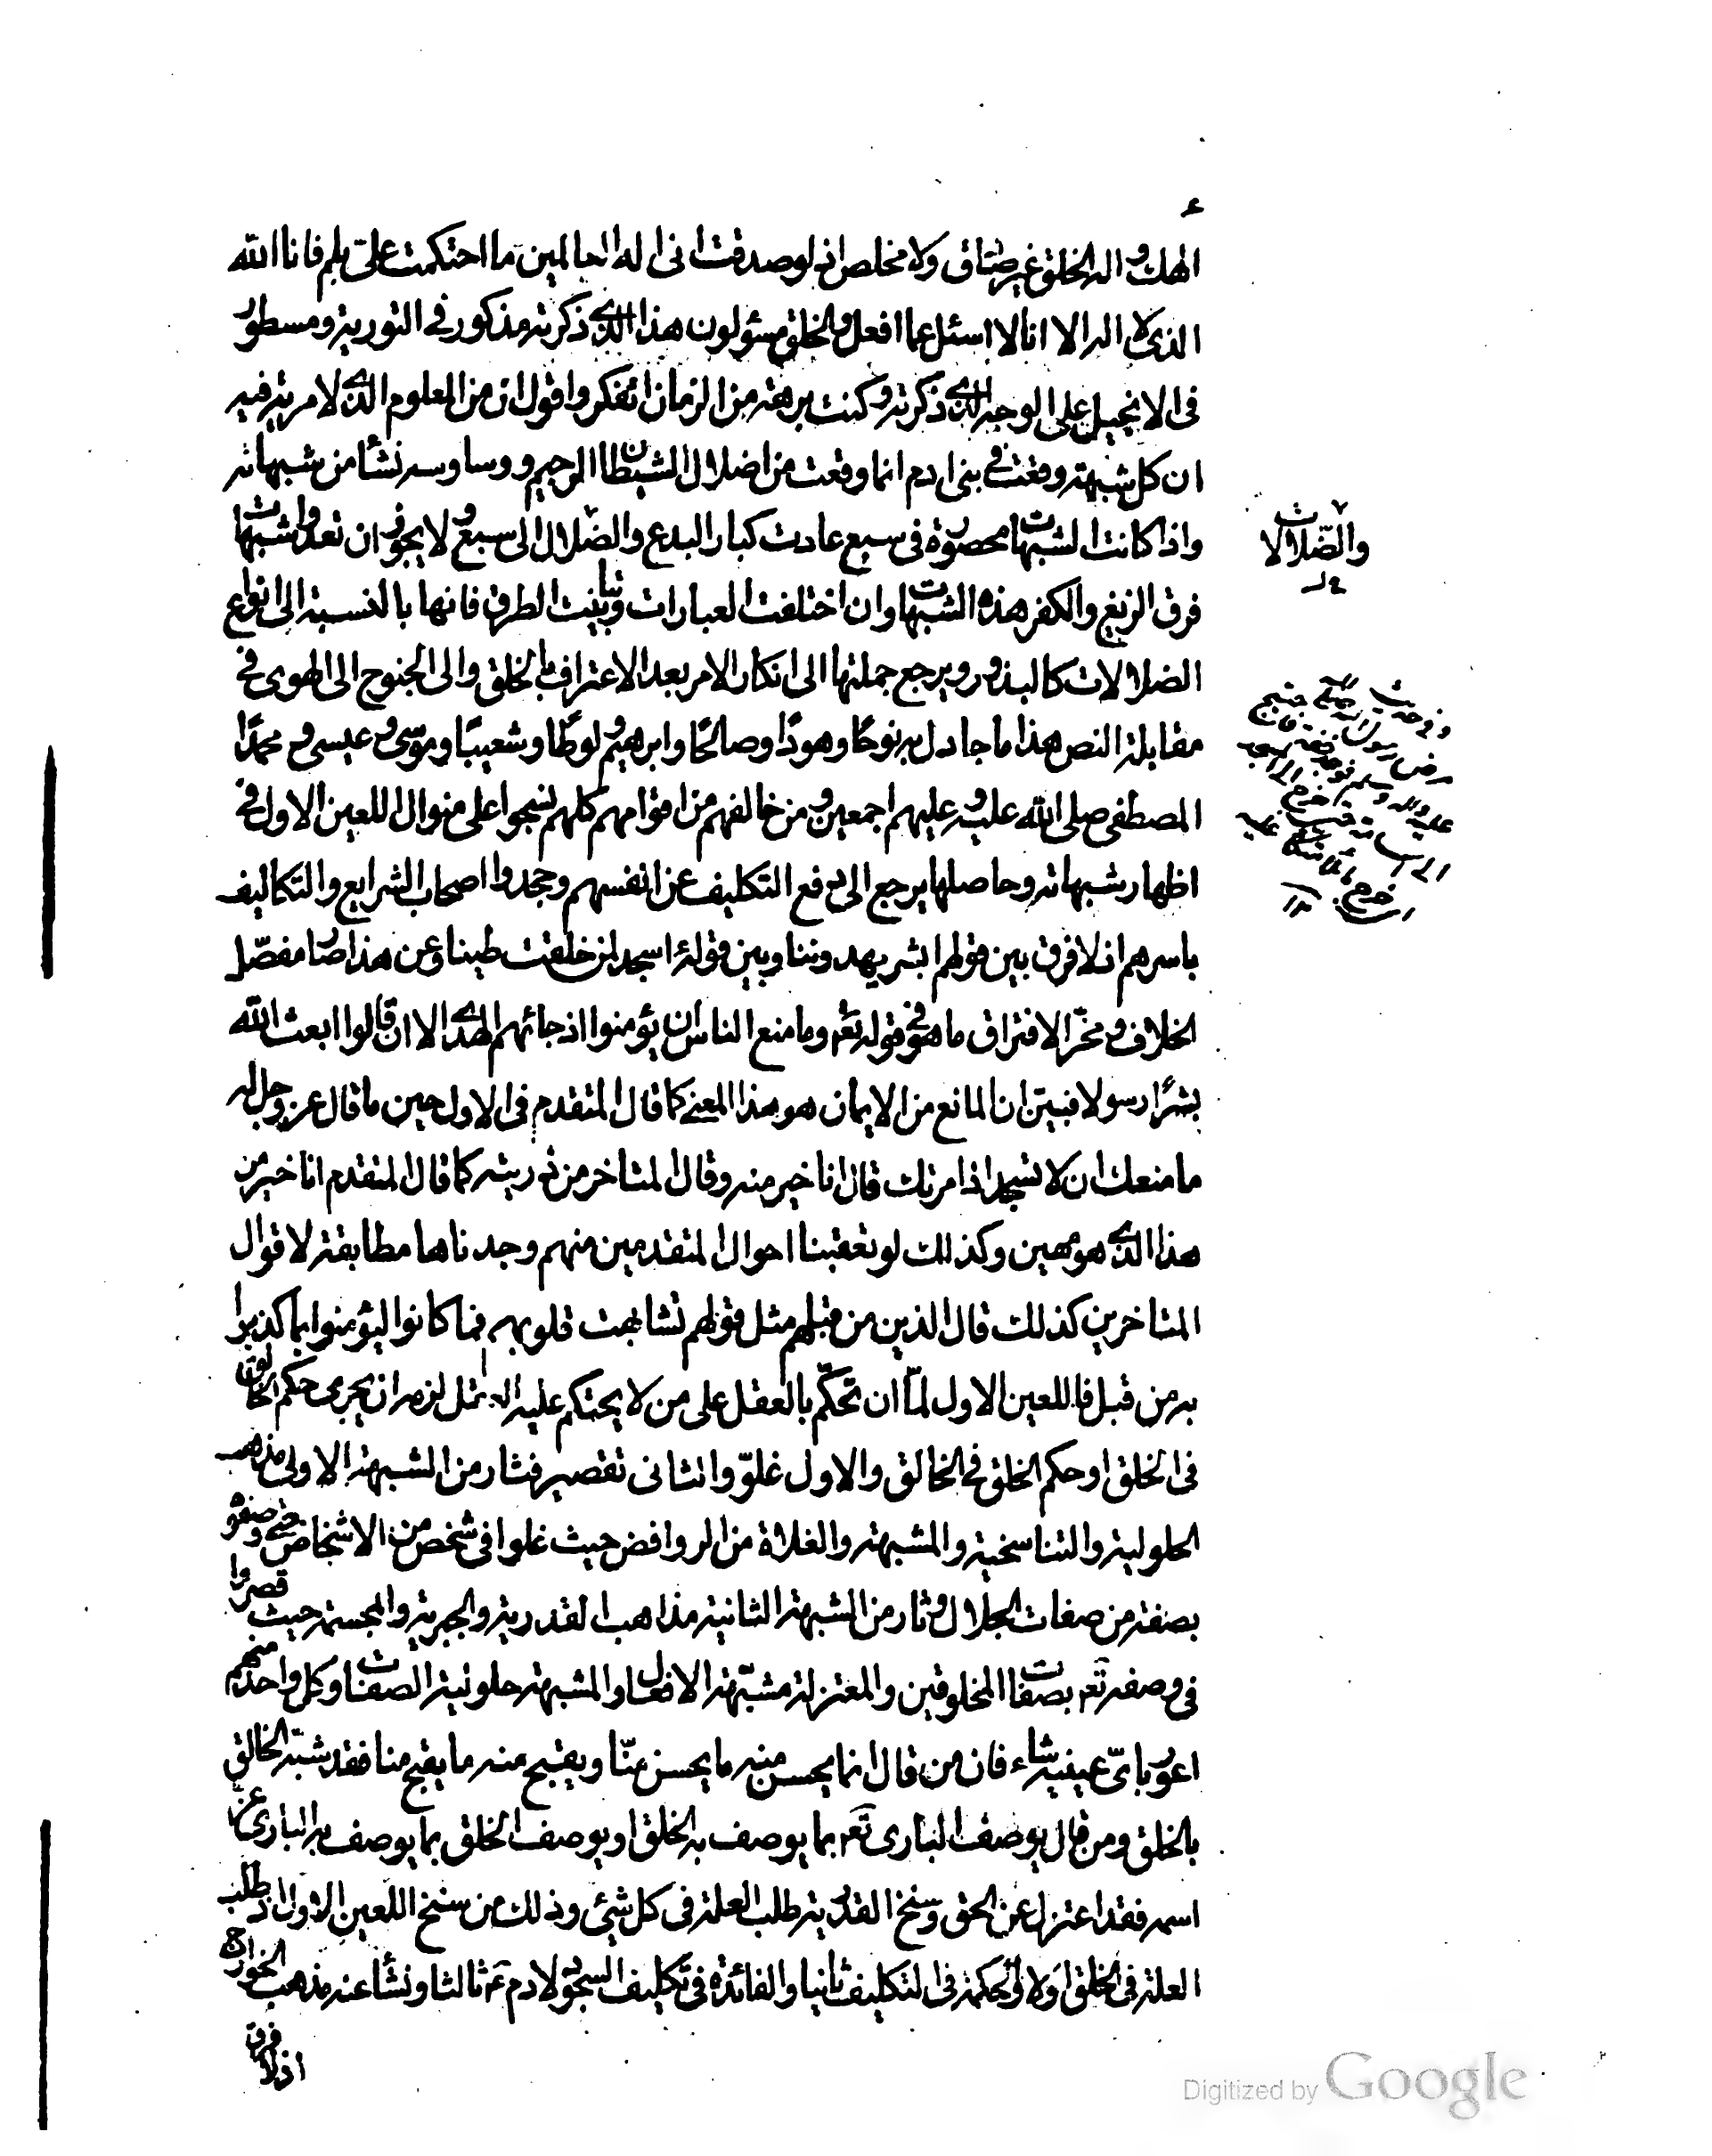 الهك واله الخلق غير صادق ولا مخلص اذ لو صدقت انى اله العالمين ما احتكمت على بلم فانا الله
الذى لا اله الا انا لا اسئل عما افعل والخلق مسئولون هذا الذى ذكرته مذكور فى التورية ومسطور
فى الانجيل على الوجه الذى ذكرته وكنت برهة من الزمان اتفكر واقول ان من المعلوم الذى لا مرية فيه
ان كل شبهة وقعت فى بنى ادم انما وقعت من اضلال الشيطان الرجيم ووساوسه نشأ من شبهاته
واذا كانت الشبهات محصورة فى سبع عادت كبار البدع والضلال الى سبع ولا يجوز ان تعدوا شبهات
فرق الزيغ والكفر هذه الشبهات وان اختلفت العبارات وتباينت الطرق فانها بالنسبة الى انواع
الضلالات كالبذور ويرجع جملتها الى انكار الامر بعد الاعتراف بالخلق والى الجنوح الى الهوى فى
مقابلة النص هذا ما جادل به نوحًا وهودًا وصالحًا وابرهيم ولوطًا وشعيبًا وموسى وعيسى ومحمدًا
المصطفى صلى الله عليه وعليهم اجمعين ومن خالفهم من اقوامهم كلهم نسجوا على منوال اللعين الاول فى
اظهار شبهاته وحاصلها يرجع الى دفع التكليف عن انفسهم وجحدوا اصحاب الشرايع والتكاليف
باسرهم اذ لا فرق بين قولهم ابشر يهدوننا وبين قوله ءاسجد لمن خلقت طينا وعن هذا صار مفصّل
الخلاف ومحزّ الافتراق ما هو فى قوله تع وما منع الناس ان يؤمنوا اذ جائهم الهدى الا ان قالوا ابعث الله
بشرًا رسولا فبين ان المانع من الايمان هو هذا المعنى كما قال المتقدم فى الاول حين ما قال عز وجل له
ما منعك ان لا تسجد اذ امرتك قال انا خير منه وقال المتاخر من ذريته كما قال المتقدم انا خير من
هذا الذى هو مهين وكذلك لو تعقبنا احوال المتقدمين منهم وجدناها مطابقة لاقوال
المتاخرين كذلك قال الذين من قبلهم مثل قولهم تشابهت قلوبهم فما كانوا ليؤمنوا بما كذبوا
به من قبل فاللعين الاول لمّا ان تحكّم بالعقل على من لا يحتكم عليه العقل لزمه ان يجرى حكم الخالق
فى الخلق او حكم الخلق فى الخالق والاول غلوّ والثانى تقصير فثار من الشبهة الاولى مذاهب
الحلولية والتناسخية والمشبهة والغلاة من الروافض حيث غلوا فى شخص من الاشخاص حتى وصفوه
بصفة من صفات الجلال وثار من الشبهة الثانية مذاهب القدرية والجبرية والمجسمة حيث قصروا
فى وصفه تع بصفات المخلوقين والمعتزلة مشبّهة الافعال والمشبهة حلولية الصفات وكل واحد منهم
اعور باىّ عينيه شاء فان من قال انما يحسن منه ما يحسن منّا ويقبح منه ما يقبح منا فقد شبّه الخالق
بالخلق ومن قال يوصف البارى تع بما يوصف به الخلق او يوصف الخلق بما يوصف به البارى عزّ
اسمه فقد اعتزل عن الحق وسنخ القدرية طلب العلة فى كل شئ وذلك من سنخ اللعين الاول اذ طلب
العلة فى الخلق اولا والحكمة فى التكليف ثانيا والفائدة فى تكليف السجود لادم ع ثالثا ونشأ عنه مذهب الخوارج
اذ لا فرق
والضّلالات
Digitized by Google